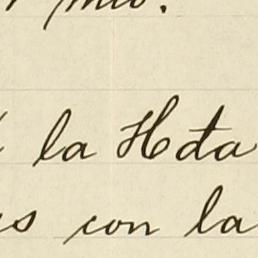 mio.
la Hda
s con la